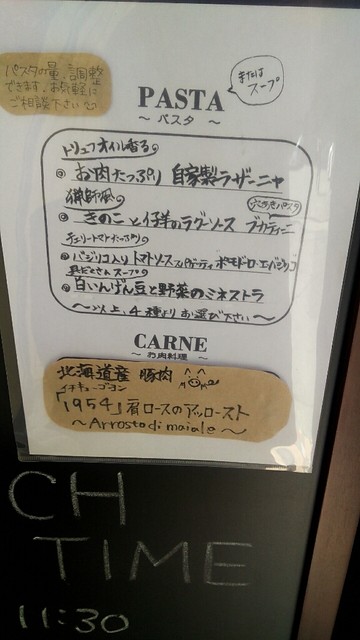 パスタの量、調整
できます。お気軽に
ご相談下さい
または
スープ
PASTA
～ パスタ ～
トリュフオイル香る
◎ お肉たっぷり 自家製ラザーニャ
猟師風
穴あきパスタ
◎ きのこと仔羊のラグーソース ブカティーニ
チェリートマトたっぷり
◎ バジリコ入りトマトソーススパゲティ ポモドーロ・エ・バジリコ
具だくさんスープ
◎ 白いんげん豆と野菜のミネストラ
～以上、4種よりお選び下さい～
CARNE
～ お肉料理 ～
北海道産 豚肉
イチキューゴーヨン
「1954」肩ロースのアッロースト
～Arrosto di maiale～
CH
TIME
11:30